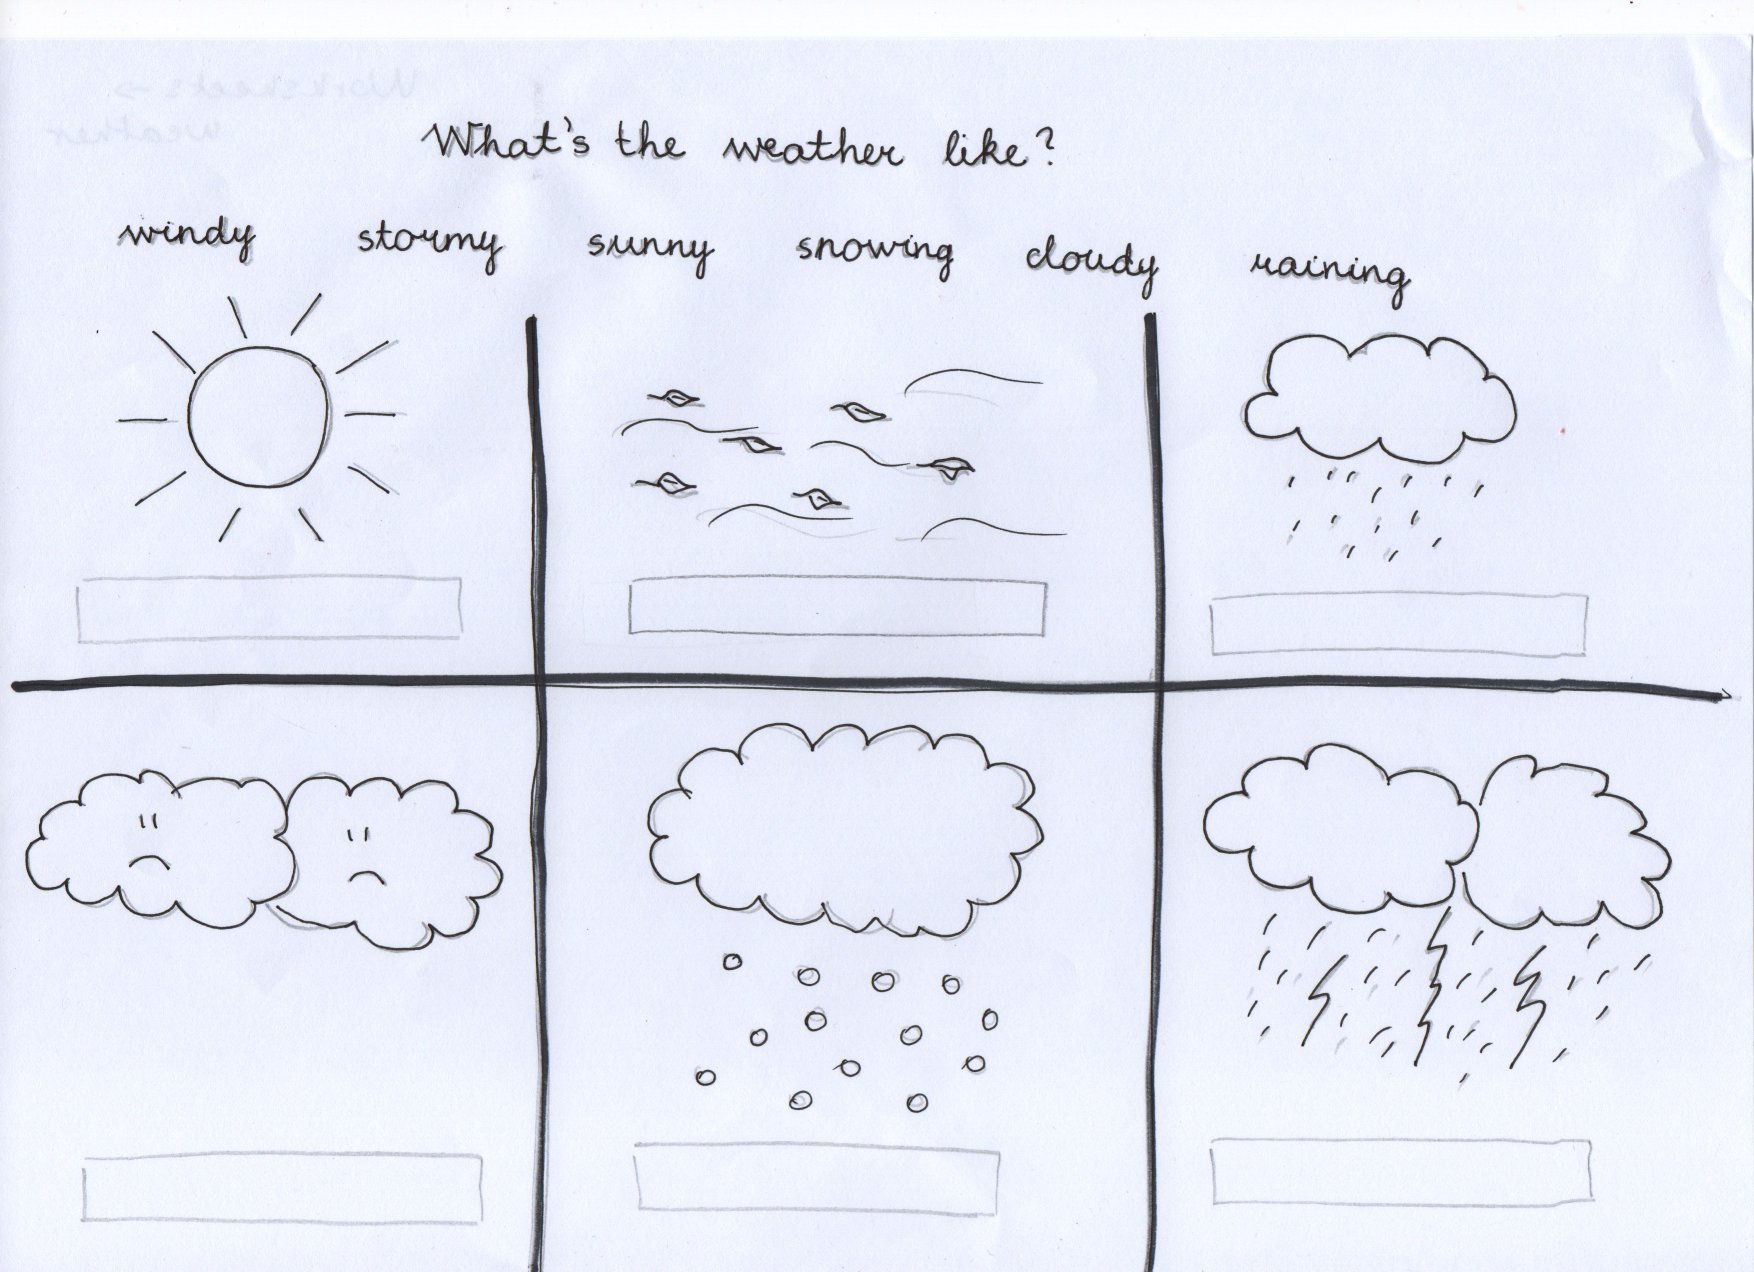 Worksheets →
weather
What's the weather like?
windy stormy sunny snowing cloudy raining